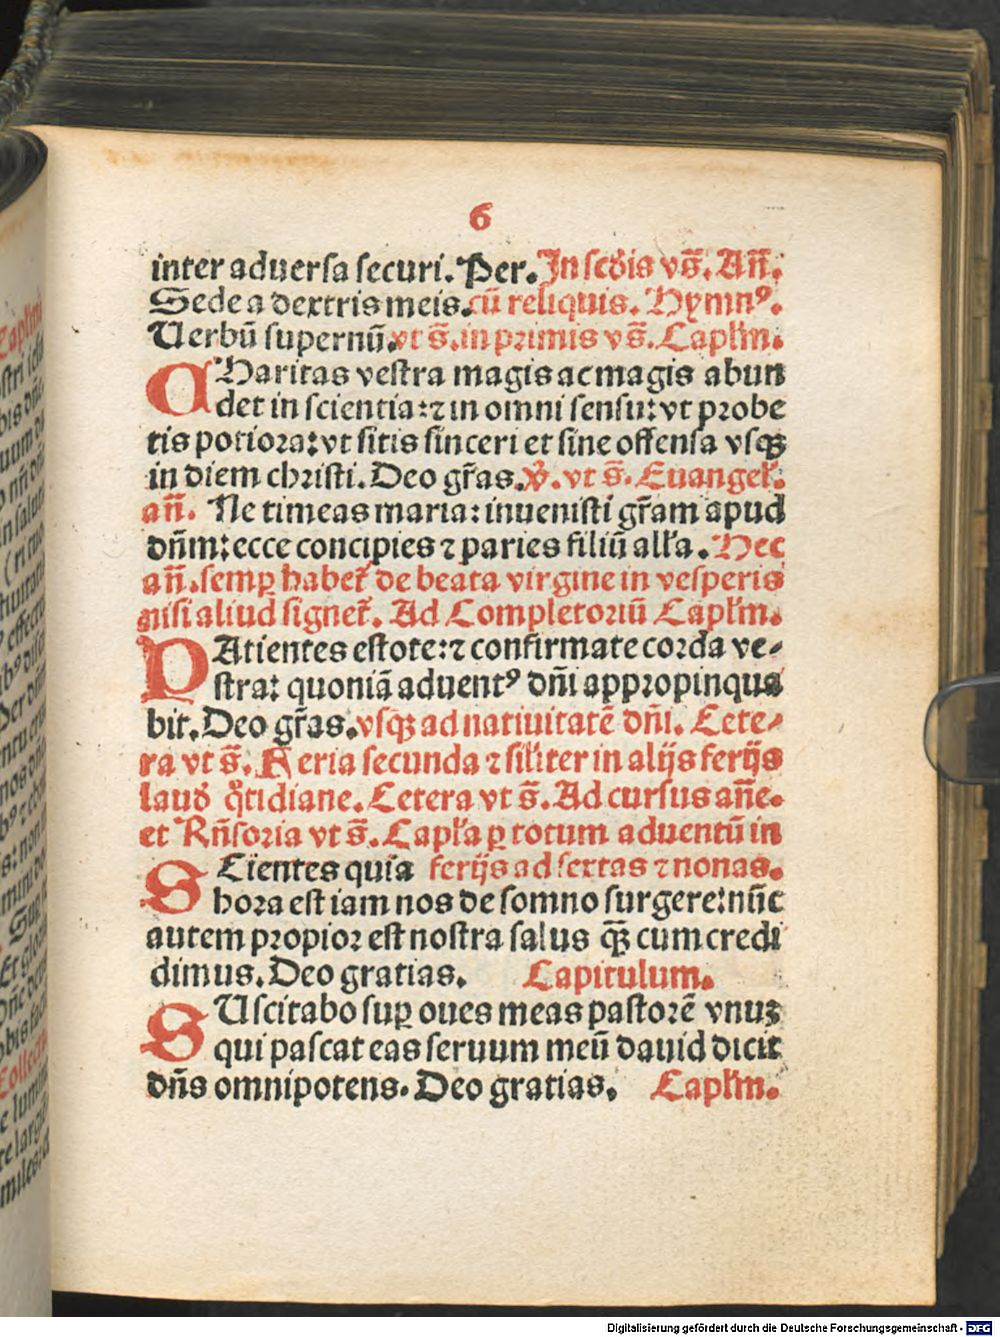 6
inter aduersa securi. Per. In scd̓is vs̄. An̄.
Sede a dextris meis. cū reliquis. Hymnꝰ.
Uerbū supernū. vt s̄. in primis vs̄. Capl'm.
CHaritas vestra magis ac magis abun
det in scientia: ⁊ in omni sensu: vt probe
tis potiora: vt sitis sinceri et sine offensa vsqꝫ
in diem christi. Deo gr̄as. v̓. vt s̄. Euangel̓.
an̄. Ne timeas maria: inuenisti gr̄am apud
dn̄m: ecce concipies ⁊ paries filiū all'a. Hec
an̄. semꝑ habet̓ de beata virgine in vesperis
nisi aliud signet̓. Ad Completoriū Capl'm.
PAtientes estote: ⁊ confirmate corda ve⸗
stra: quoniā aduentꝰ dn̄i appropinqua
bit. Deo gr̄as. vsqꝫ ad natiuitatē dn̄i. Cete⸗
ra vt s̄. Feria secunda ⁊ sil'iter in alijs ferijs
laud̓ q̄tidiane. Cetera vt s̄. Ad cursus an̄e.
et Rn̄soria vt s̄. Capl'a ꝑ totum aduentū in
SCientes quia ferijs ad sextas ⁊ nonas.
hora est iam nos de somno surgere: nūc
autem propior est nostra salus qꝫ̄ cum credi
dimus. Deo gratias. Capitulum.
SUscitabo suꝑ oues meas pastorē vnuꝫ
qui pascat eas seruum meū dauid dicit
dn̄s omnipotens. Deo gratias. Capl'm.
Digitalisierung gefördert durch die Deutsche Forschungsgemeinschaft - DFG